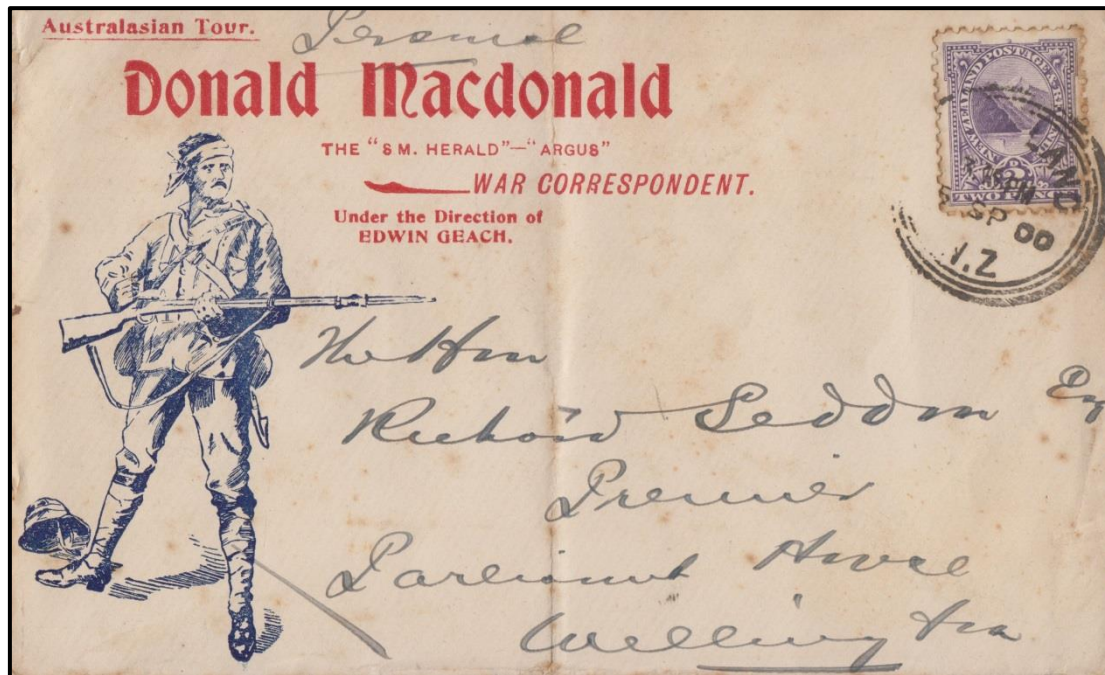 Australasian Tour.
Personal
Donald Macdonald
THE "S M. HERALD"—"ARGUS"
WAR CORRESPONDENT.
Under the Direction of
EDWIN GEACH.
NEW ZEALAND POSTAGE & REVENUE
2
TWO PENCE
SP 00
N.Z
The Hon
Richard Seddon Esq
Premier
Parliament House
Wellington